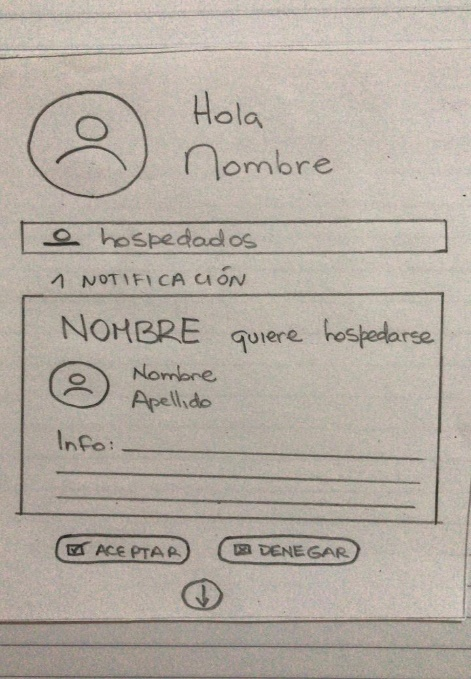 Hola
Nombre
hospedados
1 NOTIFICACIÓN
NOMBRE quiere hospedarse
Nombre
Apellido
Info:
ACEPTAR
DENEGAR